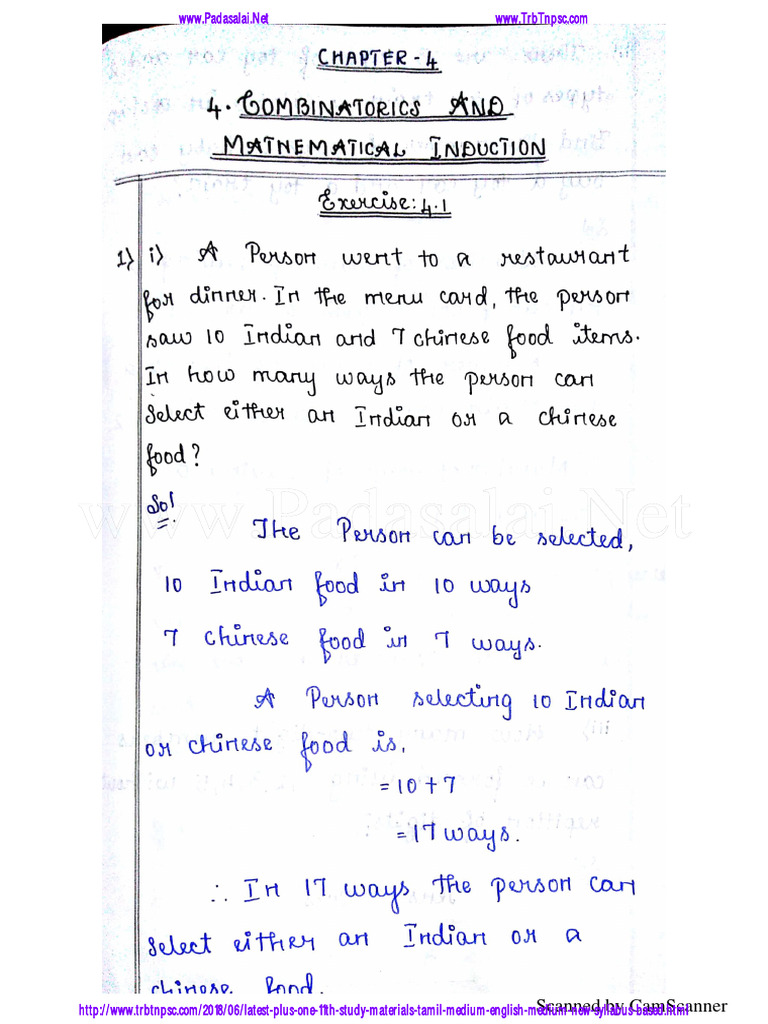 www.Padasalai.Net www.TrbTnpsc.com
CHAPTER - 4
4. COMBINATORICS AND
MATHEMATICAL INDUCTION
Exercise: 4.1
1) i) A Person went to a restaurant
for dinner. In the menu card, the person
saw 10 Indian and 7 chinese food items.
In how many ways the person can
select either an Indian or a chinese
food?
Sol
www.Padasalai.Net
The Person can be selected,
10 Indian food in 10 ways
7 chinese food in 7 ways.
A Person selecting 10 Indian
or chinese food is,
= 10 + 7
= 17 ways.
∴ In 17 ways the person can
select either an Indian or a
chinese food.
Scanned by CamScanner
http://www.trbtnpsc.com/2018/06/latest-plus-one-11th-study-materials-tamil-medium-english-medium-new-syllabus-based.html